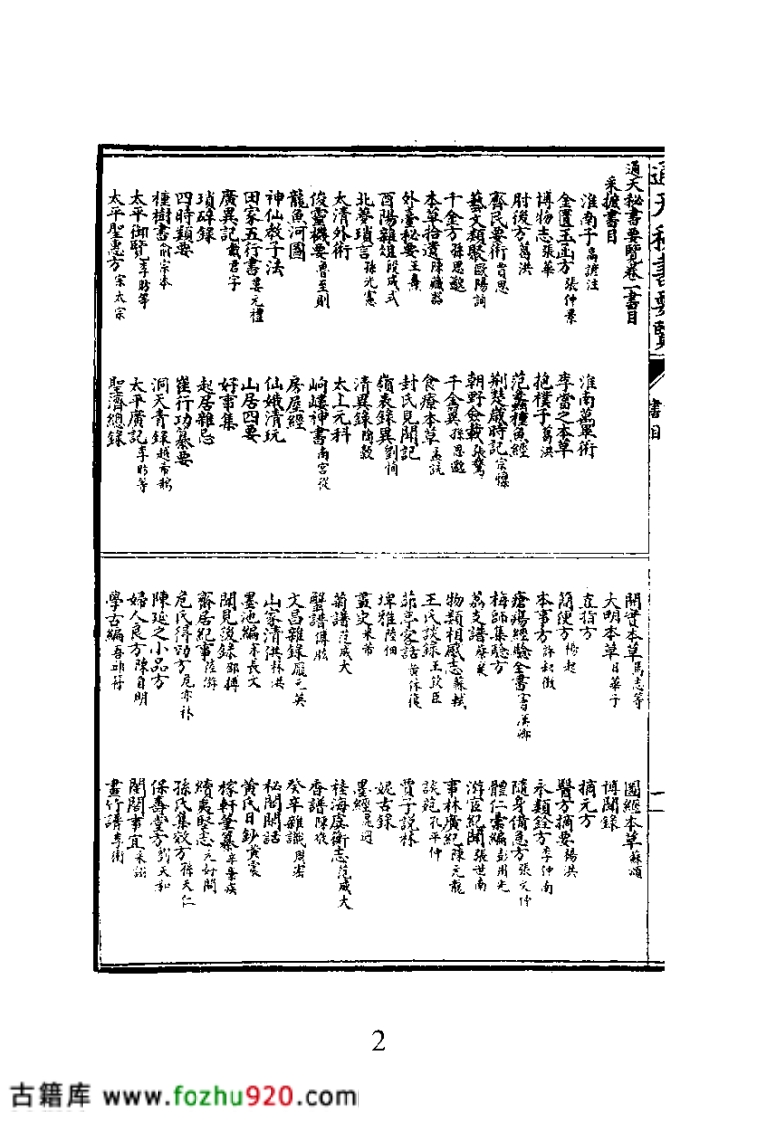 通天秘書要覽
書目
通天秘書要覽卷一書目
采摭書目
淮南子 高誘注
淮南萬畢術
金匱玉函方 張仲景
李當之本草
博物志 張華
抱樸子 葛洪
肘後方 葛洪
范蠡種魚經
齊民要術 賈思
荊楚歲時記 宗懍
藝文類聚 歐陽詢
朝野僉載 張鷟
千金方 孫思邈
千金翼 孫思邈
本草拾遺 陳藏器
食療本草 孟詵
外臺秘要 王燾
封氏見聞記
酉陽雜俎 段成式
嶺表錄異 劉恂
北夢瑣言 孫光憲
清異錄 陶穀
太清外術
太上元科
俊靈機要 曹至則
岣嶁神書 南宮從
龍魚河圖
房屋經
神仙教子法
仙娥清玩
田家五行書 婁元禮
山居四要
廣異記 戴君孚
好事集
瑣碎錄
起居雜忌
四時類要
崔行功纂要
種樹書 俞宗本
洞天青錄 趙希鵠
太平御覽 李昉等
太平廣記 李昉等
太平聖惠方 宋太宗
聖濟總錄
開寶本草 馬志等
圖經本草 蘇頌
大明本草 日華子
博聞錄
直指方
摘元方
簡便方 楊起
醫方摘要 楊洪
本事方 許叔微
永類鈐方 李仲南
瘡瘍經驗全書 竇漢卿
隨身備急方 張文仲
梅師集驗方
體仁彙編 彭用光
荔支譜 蔡襄
游宦紀聞 張世南
物類相感志 蘇軾
事林廣紀 陳元龍
王氏談錄 王欽臣
談苑 孔平仲
雞思客話 黃休復
賈子說林
埤雅 陸佃
妮古錄
畫史 米芾
墨經 晁迥
菊譜 范成大
桂海虞衡志 范成大
蟹譜 傅肱
香譜 陳敬
文昌雜錄 龐元英
癸辛雜識 周密
山家清供 林洪
秘閣閒話
墨池編 朱長文
黃氏日鈔 黃震
聞見後錄 邵博
稼軒筆纂 辛棄疾
齋居紀事 陸游
續夷堅志 元好問
危氏得効方 危亦林
孫氏集效方 孫天仁
陳延之小品方
保壽堂方 劉天和
婦人良方 陳自明
閨閣事宜 朱端
學古編 吾邱衍
畫竹譜 李衎
2
古籍库 www.fozhu920.com